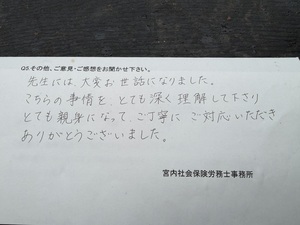 Q5.その他、ご意見・ご感想をお聞かせ下さい。
先生には、大変お世話になりました。
こちらの事情を、とても深く理解して下さり
とても親身になって、ご丁寧にご対応いただき
ありがとうございました。
宮内社会保険労務士事務所